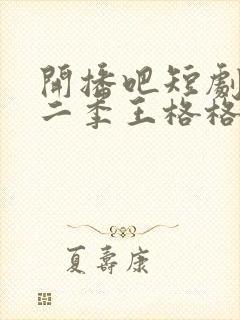 開播吧短劇
二季王格格
夏壽康